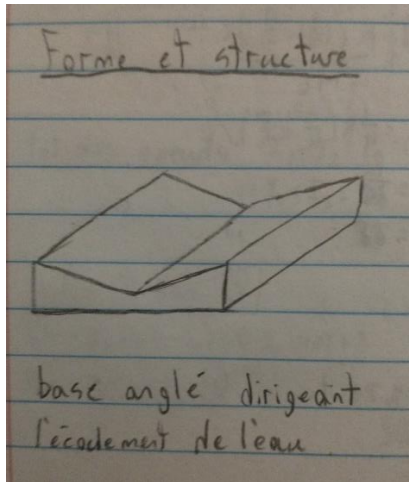 Forme et structure
base anglé dirigeant
l'écoulement de l'eau.